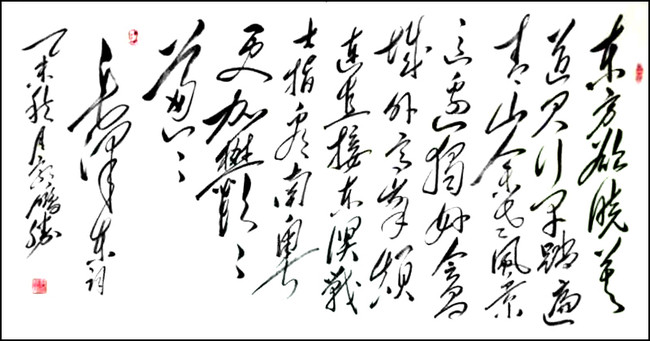 东方欲晓莫
道君行早踏遍
青山人未老风景
这边独好会昌
城外高峰颠
连直接东溟战
士指看南粤
更加郁々
葱々
毛泽东词
秋月